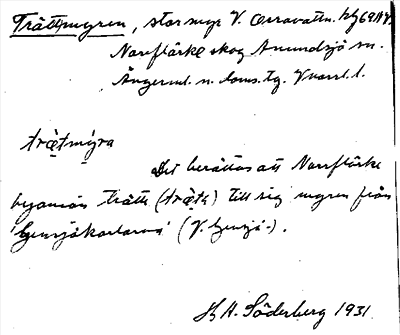 Trättmyren, stor myr V. Orravattn.
Norrflärke skog Anundsjö sn.
Ångerml. n. doms. tg. V.norrl. l.
trätmýra
Det berättas att Norrflärke
byamän trätte (träte) till sig myren från
Gensjökarlarna (V. Gensjö-).
H A. Söderberg 1931